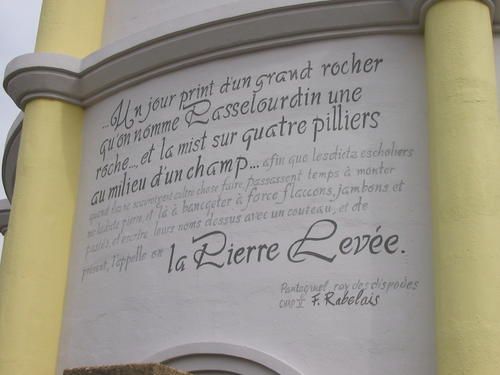 ...Un jour print d'un grand rocher
qu'on nomme Passelourdin une
roche..., et la mist sur quatre pilliers
au milieu d'un champ... afin que lesdictz escholiers
quand ilz ne sauroyent aultre chose faire, passassent temps à monter
sur ladicte pierre, et là à bancqueter à force flaccons, jambons et
pastés, et escrire leurs noms dessus avec un couteau, et de
présent, l'appelle on la Pierre Levée.
Pantagruel, roy des dispodes
F. Rabelais